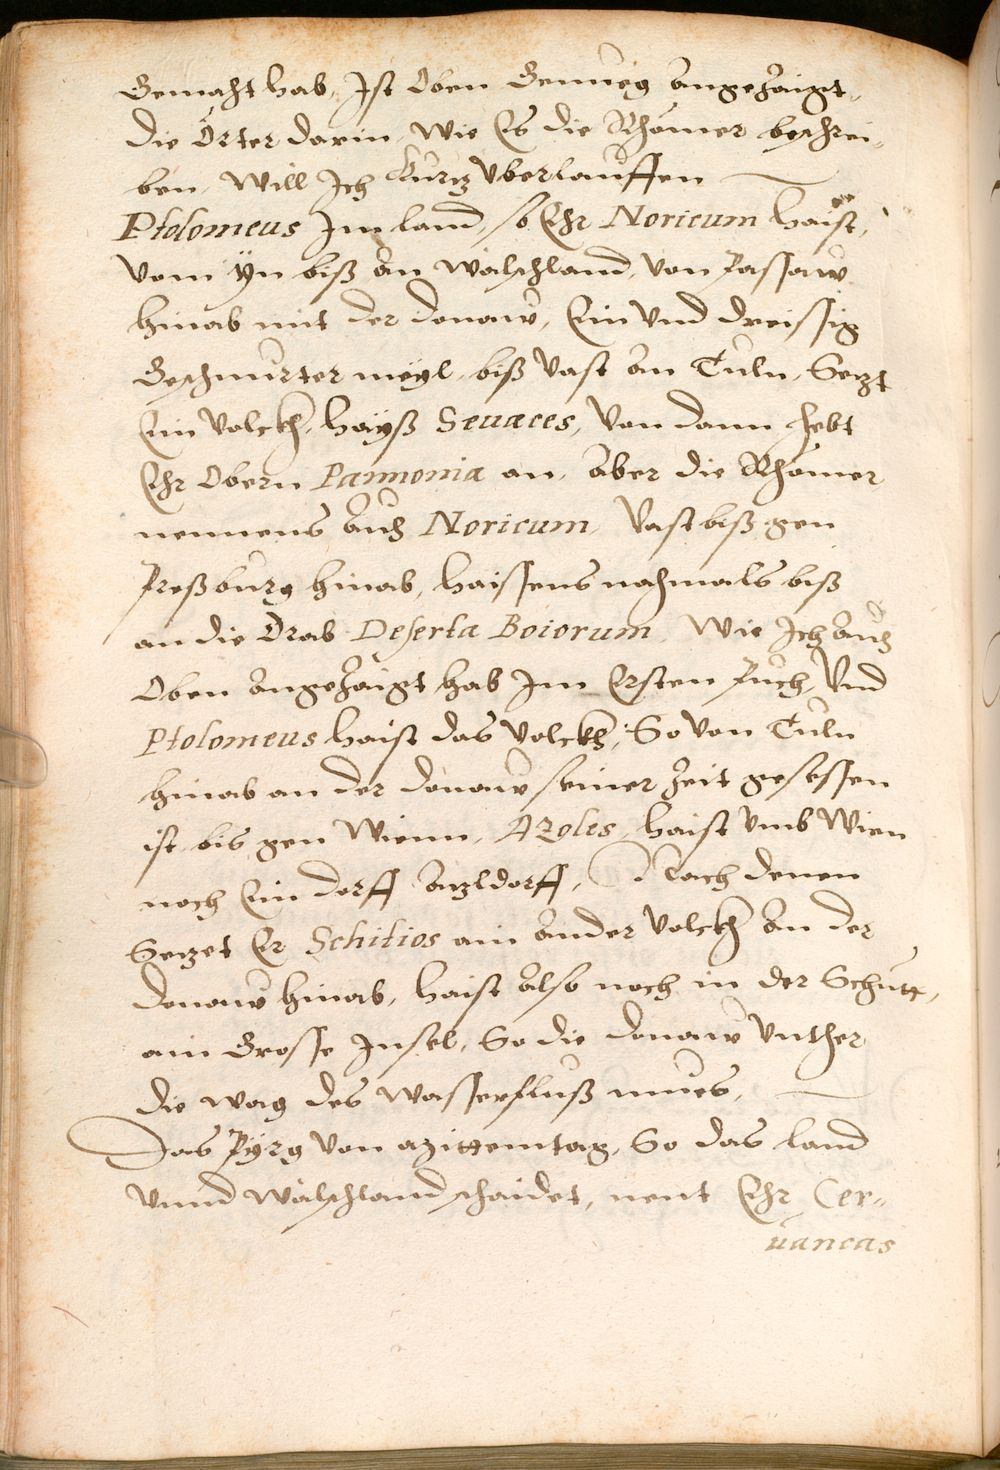 Gemacht hab, Ist Oben Genueg angezaigt,
die Örter darin, Wie Es die Rhömer beschrei¬
ben, Will Ich Kurtz Vberlauffen
Ptolomeus Im land, so Ehr Noricum haist,
vom Yn biß an Wälschland, von Passaw
hinab mit der donaw, Ein Vnd dreissig
Geschnurter meyl, biß Vast an Tuln, Setzt
Ein Volckh, hayß Seuaces, Von dann hebt
Ehr Obern Pannonia an, aber die Rhömer
nennens auch Noricum, Vast biß gen
Preßburg hinab, haissens nachmals biß
an die Drab Deserta Boiorum, Wie Ich auch
Oben angezaigt hab Im Ersten Puch, Vnd
Ptolomeus haist das Volckh, So Von Tuln
hinab an der donaw seiner Zeit gesessen
ist bis gen Wienn, Azoles, haist Vmb Wien
noch Ein dorff Atzldorff, Nach denen
Setzet Er Schitios ain ander Volckh an der
donaw hinab, haist also noch in der Schütt,
ain Grosse Insel, So die donaw Vnther
die wag des wasserfluß
Das Pyrg Von So das land
Vnnd Wälschland schaidet, nent Ehr Cer¬
uancas